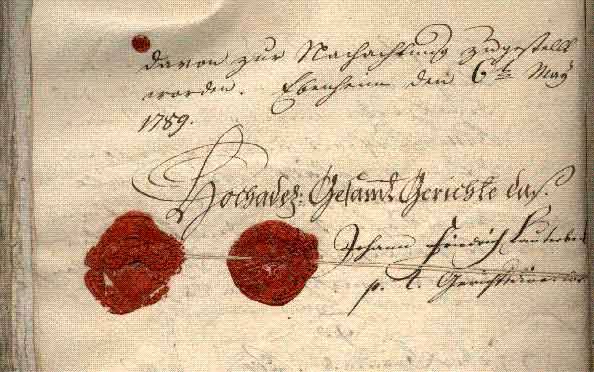 davon zur Nachachtung zugestellt
worden. Ebenheim den 6te May
1789.
Hochadel: Gesamt Gerichte das.
Johann Friedrich Lauterba
p. t.